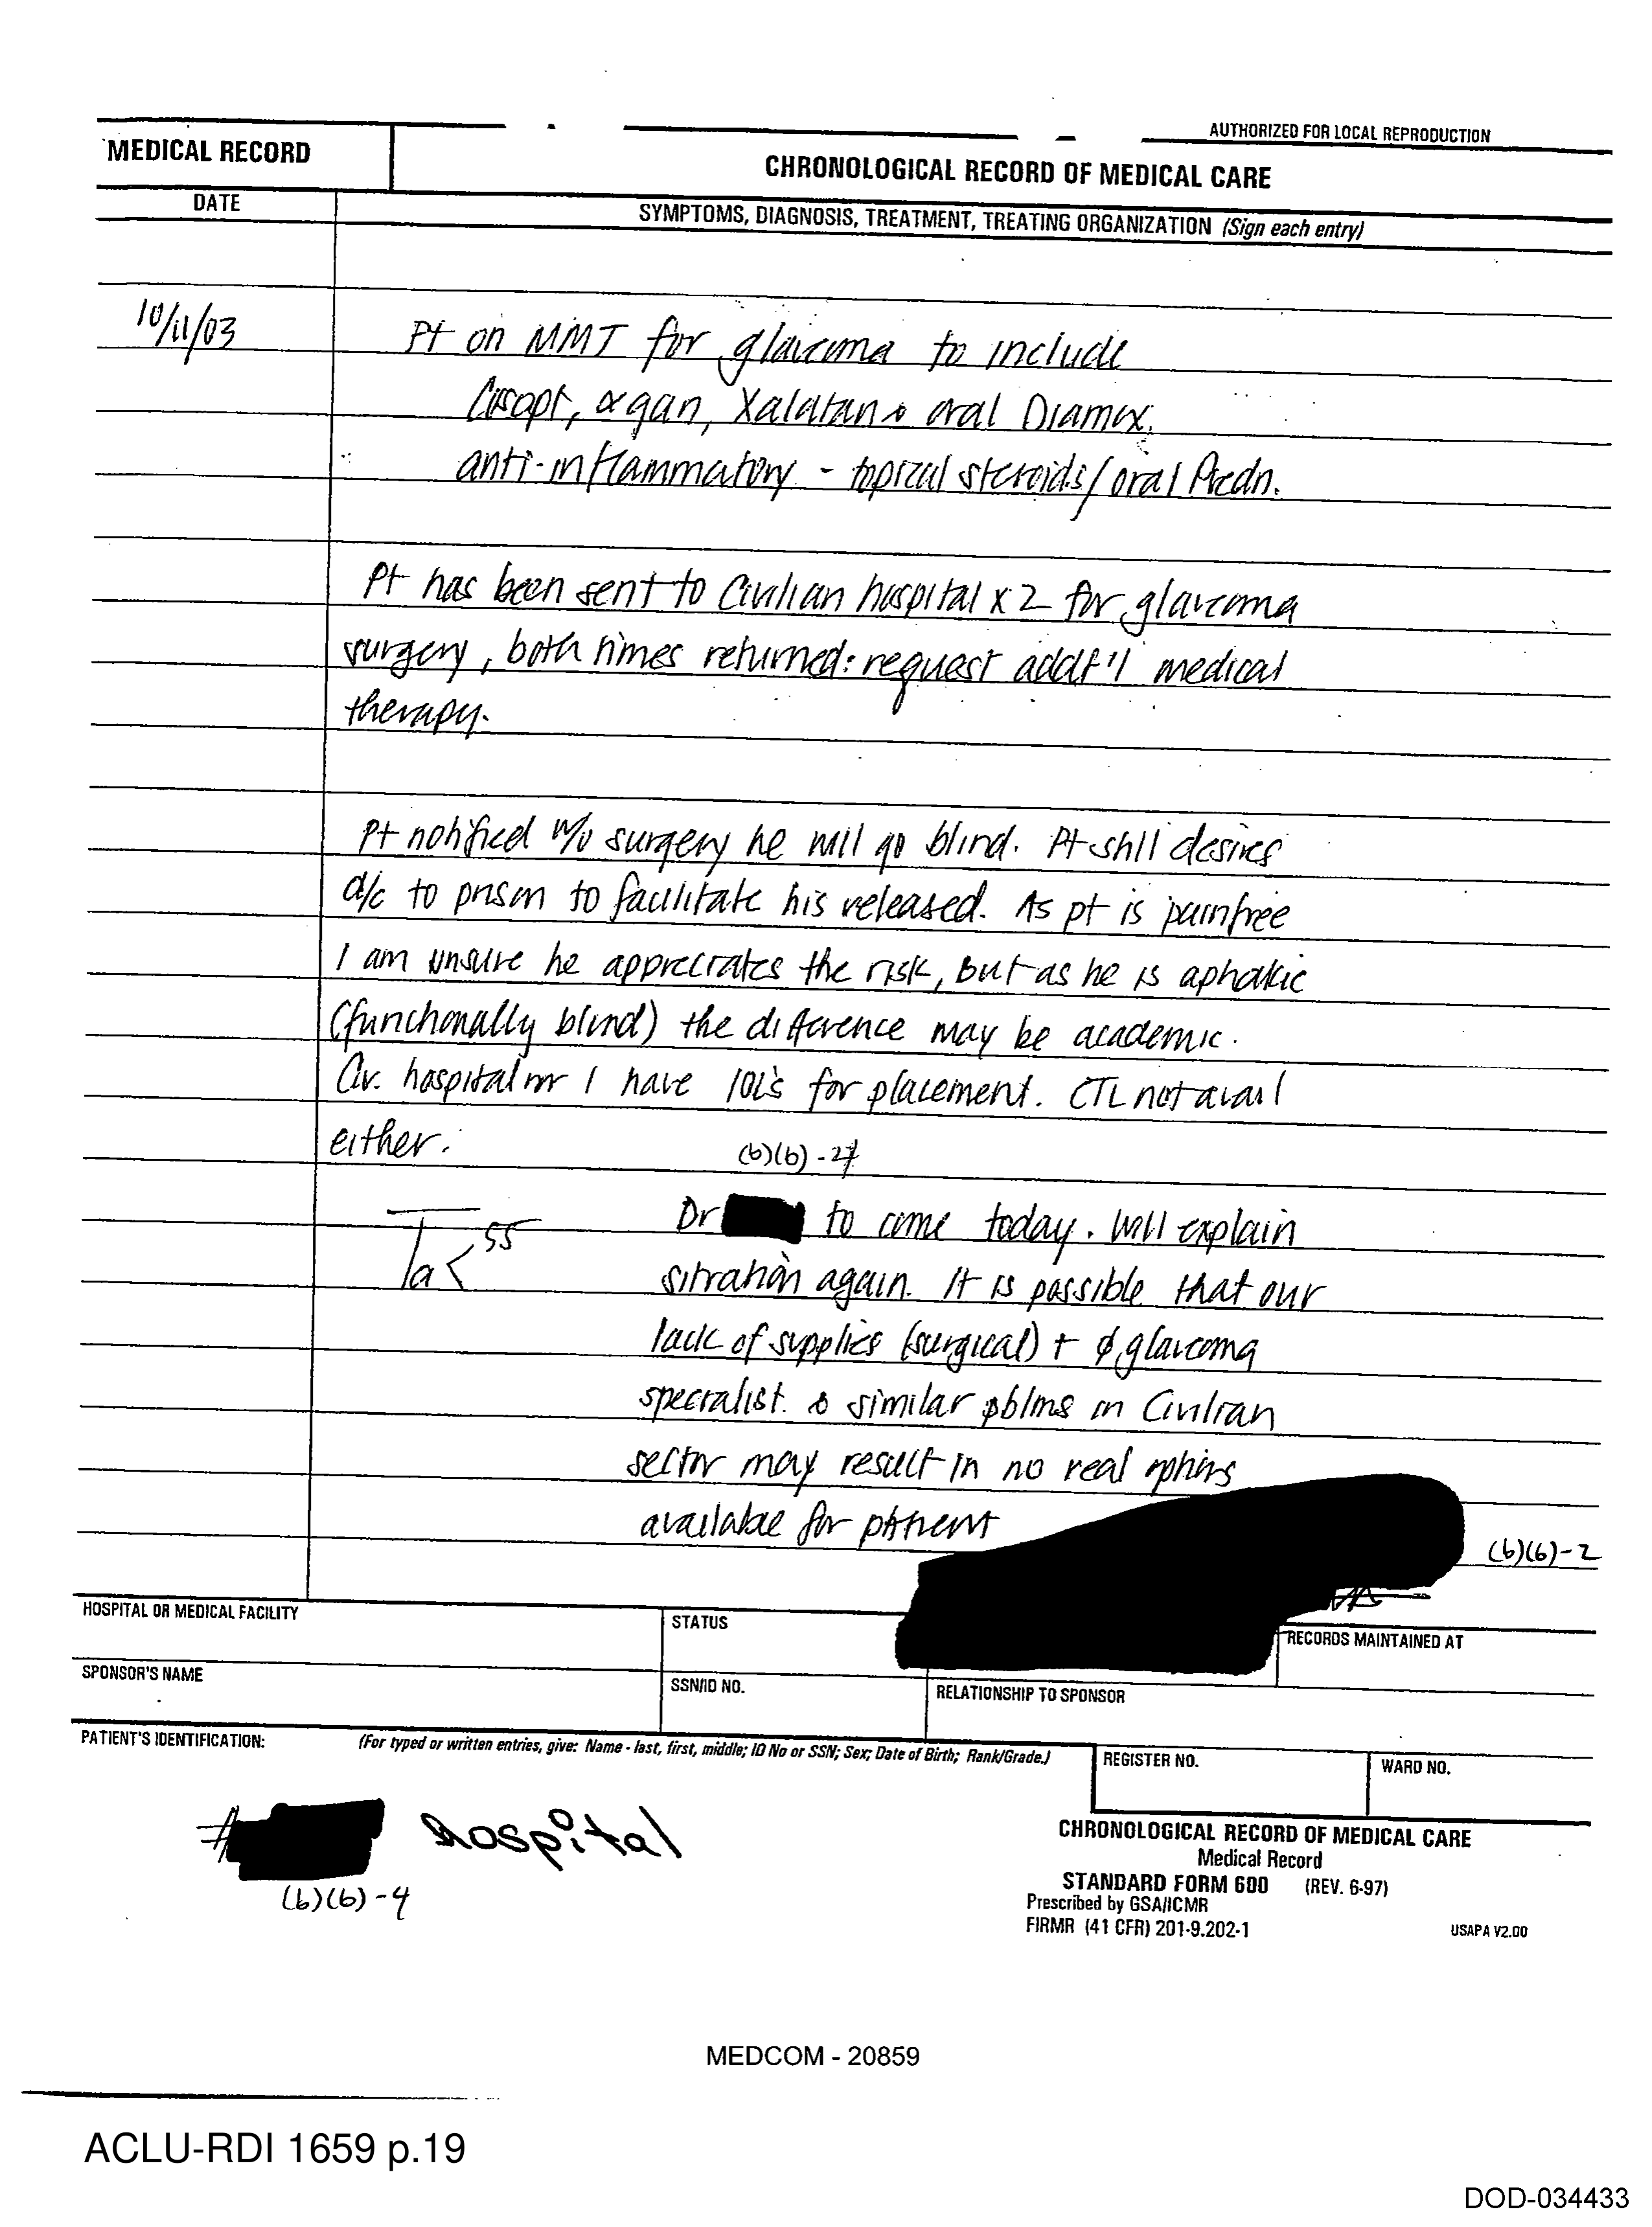 AUTHORIZED FOR LOCAL REPRODUCTION
MEDICAL RECORD
CHRONOLOGICAL RECORD OF MEDICAL CARE
DATE
SYMPTOMS, DIAGNOSIS, TREATMENT, TREATING ORGANIZATION (Sign each entry)
10/11/03
Pt on MMT for glaucoma to include
Xalatan & oral Diamox.
anti-inflammatory - topical steroids/oral Predn.
Pt has been sent to Civilian hospital x 2 for glaucoma
surgery, both times returned: request addt'l medical
therapy.
Pt notified w/o surgery he will go blind. Pt still desires
d/c to prison to facilitate his released. As pt is painfree
I am unsure he appreciates the risk, but as he is aphakic
(functionally blind) the difference may be academic.
Civ. hospital nor I have IOL's for placement. CTL not avail
either.
(b)(6)-2
Dr to come today. Will explain
Ta < 55
situation again. It is possible that our
lack of supplies (surgical) + ∅ glaucoma
specialist & similar pblms in Civilian
sector may result in no real options
available for patient
(b)(6)-2
HOSPITAL OR MEDICAL FACILITY
STATUS
RECORDS MAINTAINED AT
SPONSOR'S NAME
SSN/ID NO.
RELATIONSHIP TO SPONSOR
PATIENT'S IDENTIFICATION:
(For typed or written entries, give: Name - last, first, middle; ID No or SSN; Sex; Date of Birth; Rank/Grade.)
REGISTER NO.
WARD NO.
# Hospital
(b)(6)-4
CHRONOLOGICAL RECORD OF MEDICAL CARE
Medical Record
STANDARD FORM 600 (REV. 6-97)
Prescribed by GSA/ICMR
FIRMR (41 CFR) 201-9.202-1
USAPA V2.00
MEDCOM - 20859
ACLU-RDI 1659 p.19
DOD-034433